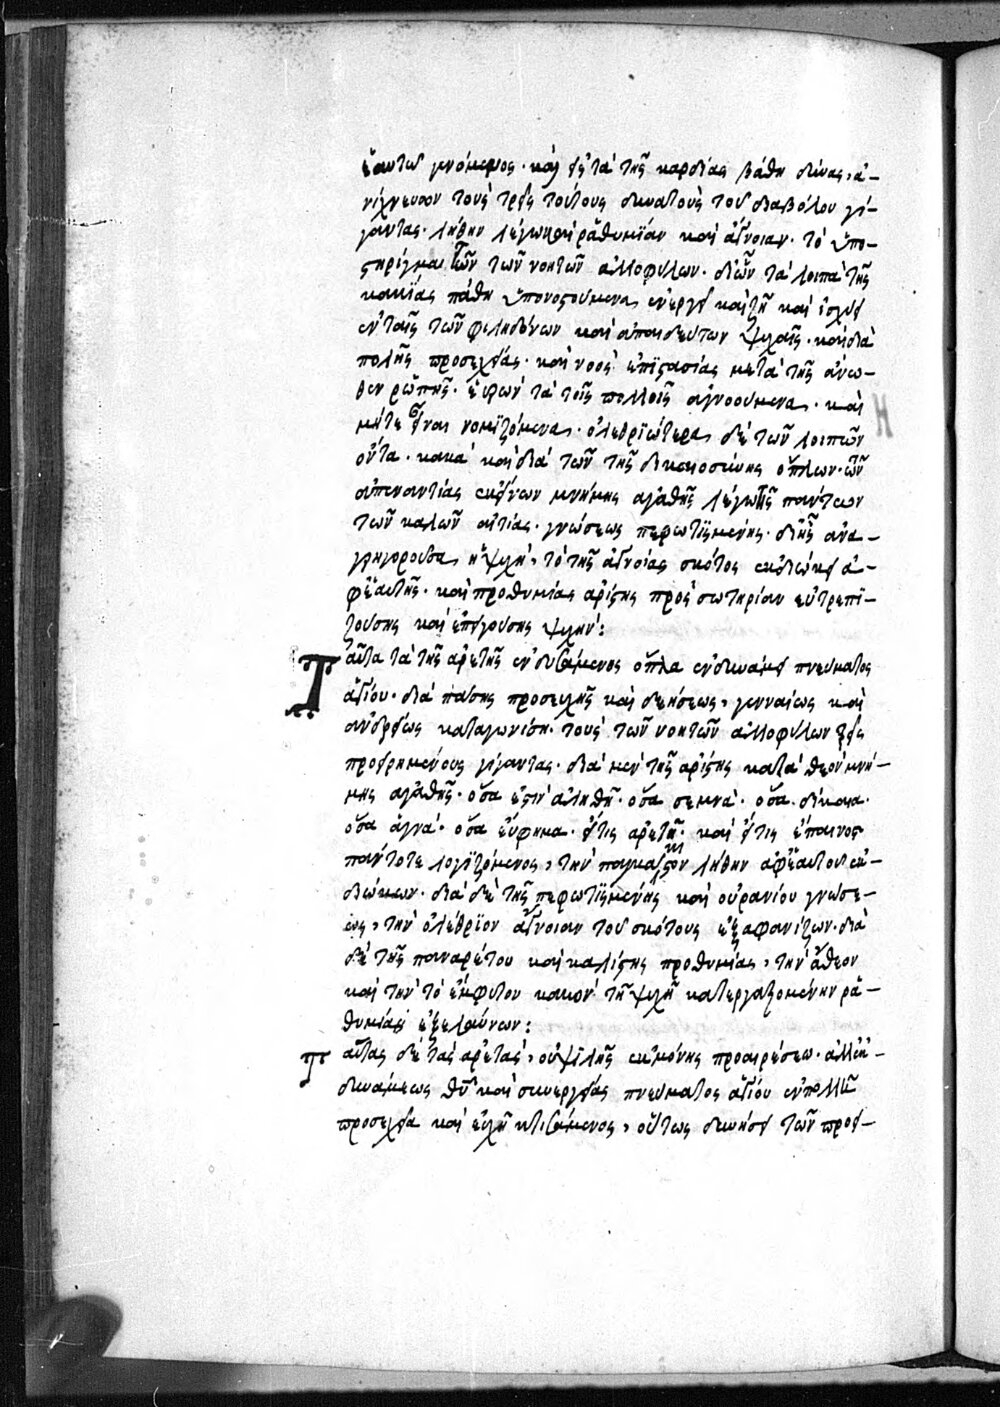 ἑαυτῶ γενόμενος· καὶ εἰς τὰ τῆς καρδίας βάθη δύνας, ἀ-
νίχνευσον τοὺς τρεῖς τούτους δυνατοὺς τοῦ διαβόλου γί-
γαντας· λήθην λέγω καὶ ῥαθυμίαν καὶ ἄγνοιαν· τὸ ὑπο-
στήριγμα τῶν νοητῶν ἀλλοφύλων· δι' ὧν τὰ λοιπὰ τῆς
κακίας πάθη ὑπονοστούμενα ἐνεργεῖ καὶ ζῆ καὶ ἰσχύει
ἐν ταῖς τῶν φιληδόνων καὶ ἀπαιδεύτων ψυχαῖς· καὶ διὰ
πολῆς προσεχείας· καὶ νοὸς ἐπιστασίας μετὰ τῆς ἄνω-
θεν ῥωπῆς· εὑρὼν τὰ τοῖς πολλοῖς ἀγνοούμενα· καὶ
μήτε εἶναι νομιζόμενα· ὀλεθριώτερα δὲ τῶν λοιπῶν
ὄντα· κακὰ καὶ διὰ τῶν τῆς δικαιοσύνης ὅπλων· τῶν
ἀπεναντίας ἐκείνων μνήμης ἀγαθῆς λέγω τῆς πάντων
τῶν καλῶν αἰτίας· γνώσεως πεφωτισμένης· δι' ἧς ἀνα-
γρηγοροῦσα ἡ ψυχὴ, τὸ τῆς ἀγνοίας σκότος ἐκδιώκει ἀ-
φ' ἑαυτῆς· καὶ προθυμίας ἀρίστης πρὸς σωτηρίαν εὐτρεπι-
ζούσης καὶ ἐπειγούσης ψυχήν:
Ταῦτα τὰ τῆς ἀρετῆς ἐνδυσάμενος ὅπλα ἐν δυνάμει πνεύματος
ἁγίου· διὰ πάσης προσευχῆς καὶ δεήσεως, γενναίως καὶ
ἀνδρείως καταγωνίση· τοὺς τῶν νοητῶν ἀλλοφύλων τρεῖς
προειρημένους γίγαντας· διὰ μὲν τῆς ἀρίστης κατὰ θεὸν μνή-
μης ἀγαθῆς· ὅσα ἐστὶν ἀληθῆ· ὅσα σεμνά· ὅσα δίκαια·
ὅσα ἁγνά· ὅσα εὔφημα· εἴ τις ἀρετὴ· καὶ εἴ τις ἔπαινος
πάντοτε λογιζόμενος, τὴν παγκάκιστον λήθην ἀφ' ἑαυτοῦ ἐκ-
διώκων· διὰ δὲ τῆς πεφωτισμένης καὶ οὐρανίου γνώσε-
ως, τὴν ὀλέθριον ἄγνοιαν τοῦ σκότους ἐξαφανίζων· διὰ
δὲ τῆς παναρέτου καὶ καλίστης προθυμίας, τὴν ἄθεον
καὶ τὴν τὸ ἔμφυτον κακὸν τῆ ψυχῆ κατεργαζομένην ῥα-
θυμίαν ἐξελαύνων:
Ταύτας δὲ τὰς ἀρετὰς, οὐ ψιλῆς ἐκ μόνης προαιρέσεως· ἀλλ' ἐκ
δυνάμεως θῦ καὶ συνεργείας πνεύματος ἁγίου ἐν πολλῆ
προσεχεία καὶ εὐχῆ κτισάμενος, οὕτως δυνήσει τῶν προει-